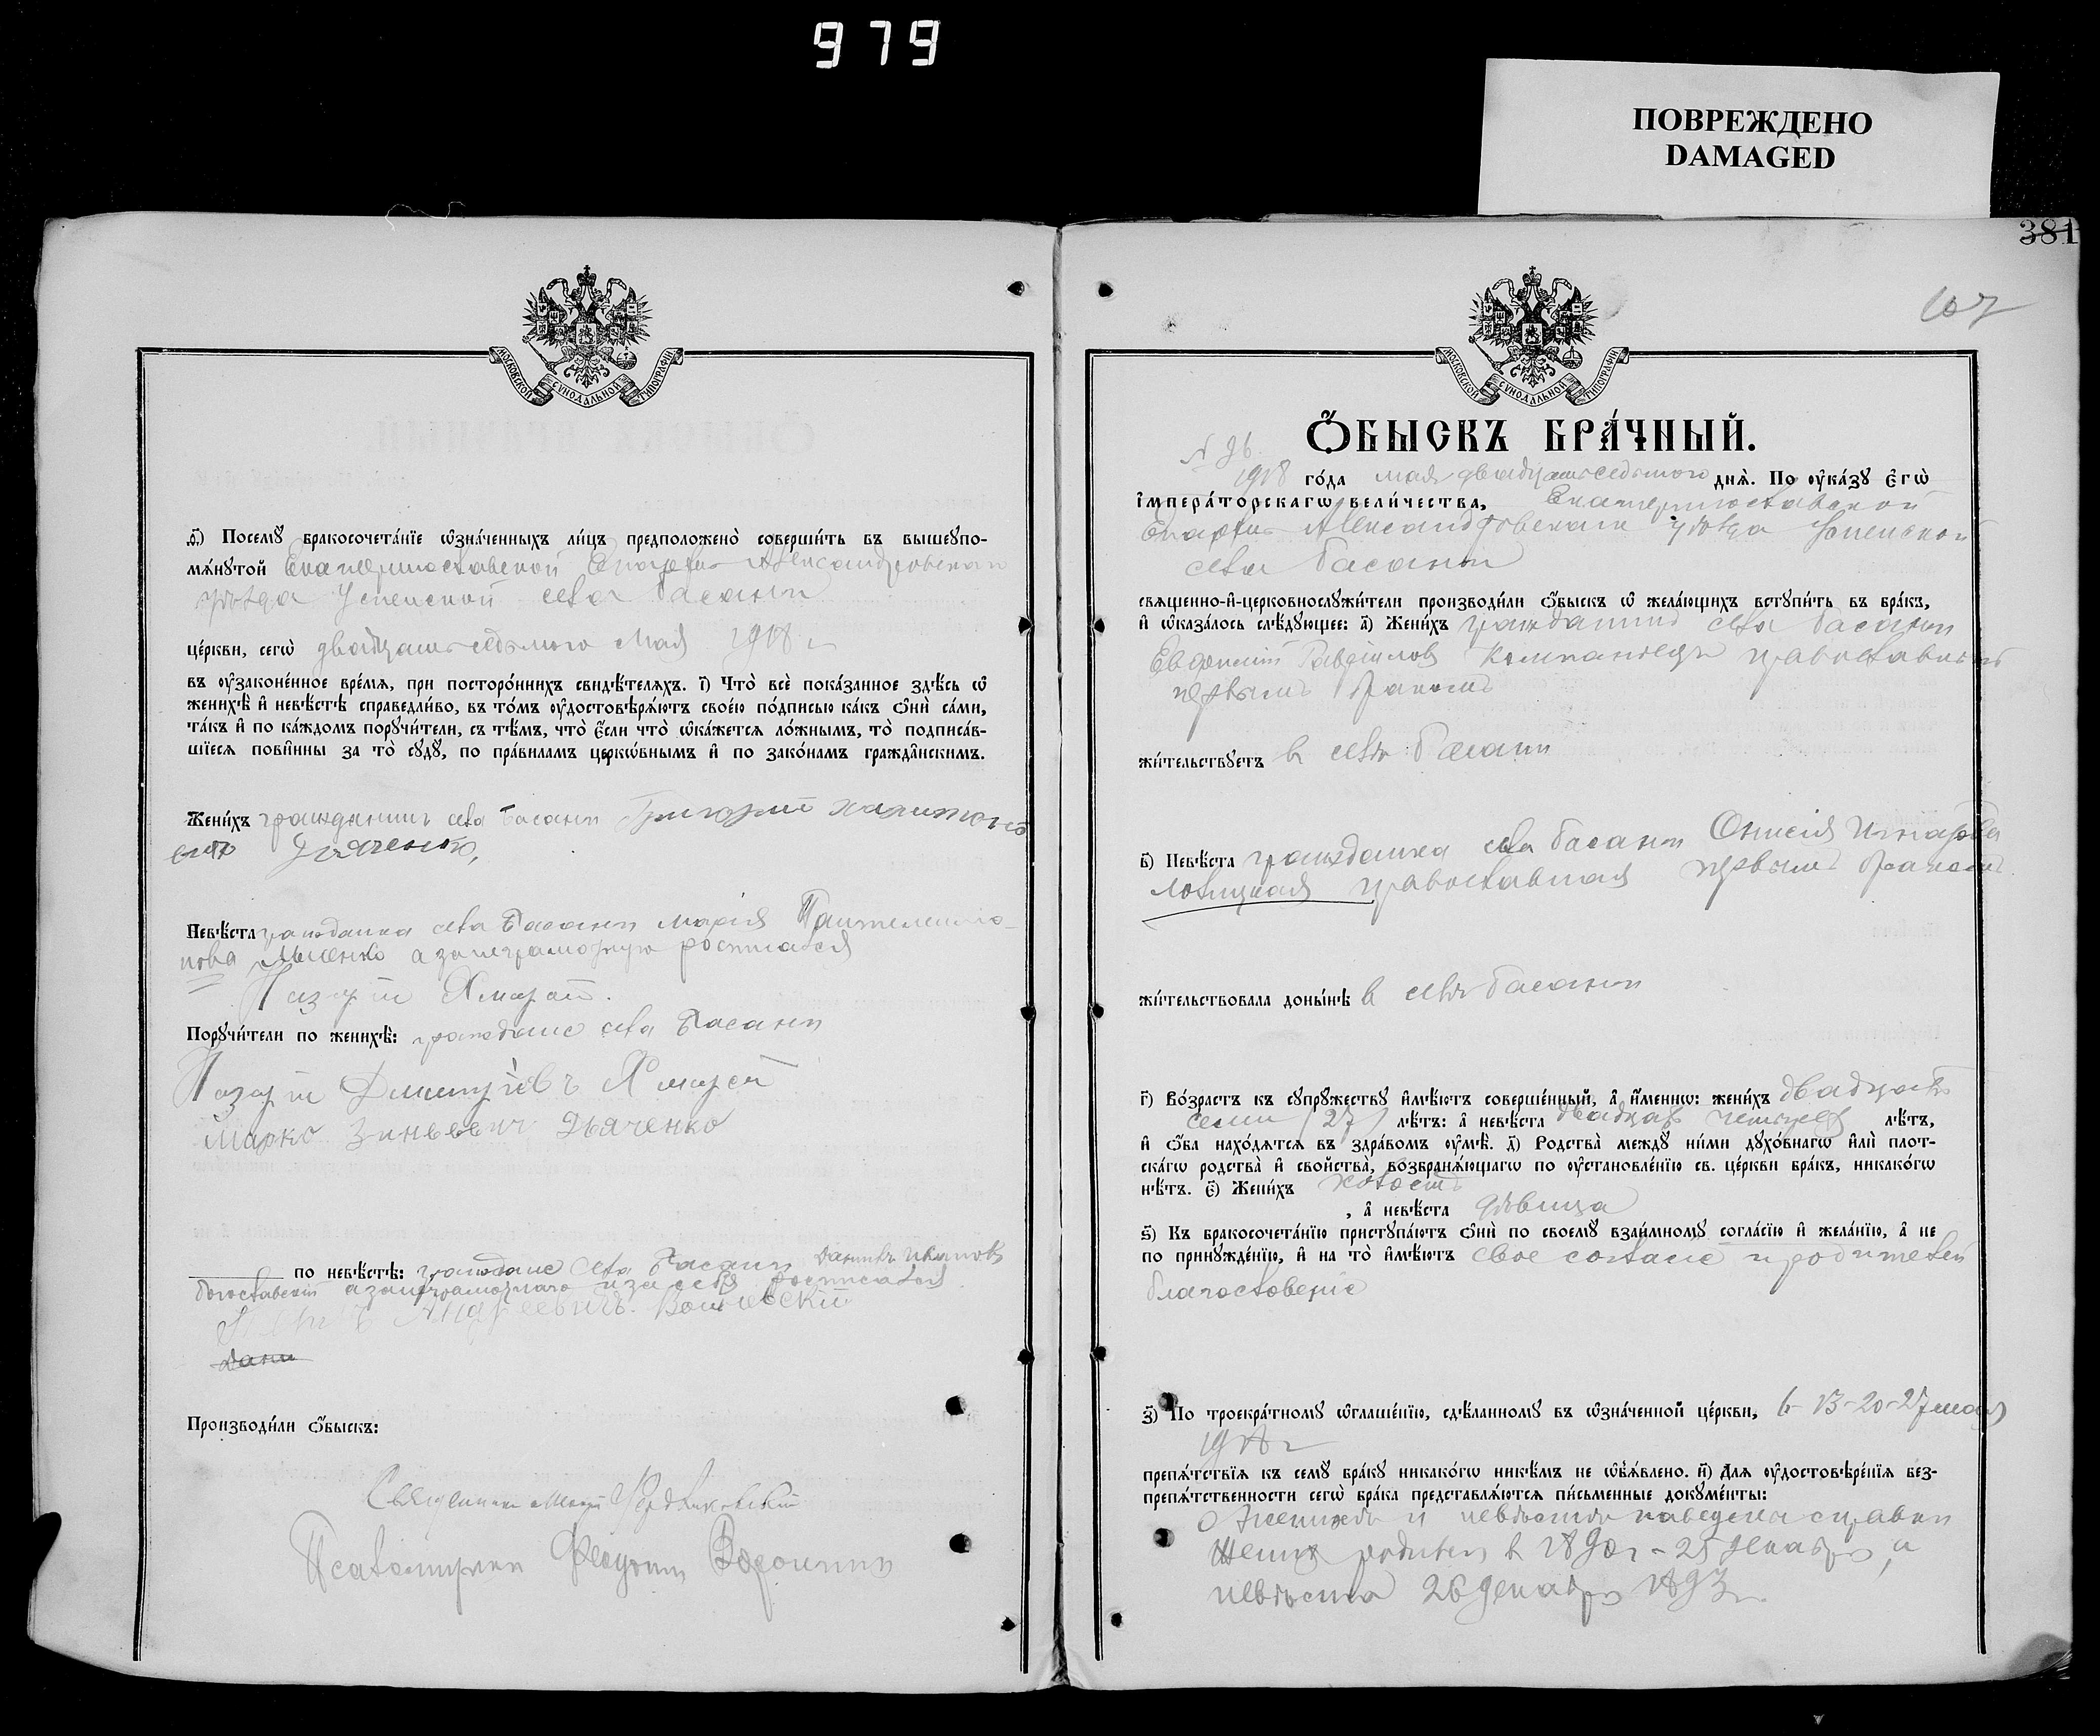 979
ПОВРЕЖДЕНО
DAMAGED
МОСКОВСКОЙ СУНОДАЛЬНОЙ ТИПОГРАФІИ
ѳ҃) Посемꙋ бракосочета́нїе ѡ҆зна́ченныхъ ли́цъ предположено̀ соверши́ть въ вышеꙋпо-
мѧ́нутой Екатеринославской Епархіи Александровскаго
уѣзда Успенской села Басани
це́ркви, сегѡ̀ двадцать седьмого Мая 1918 г
въ ᲂу҆законе́нное вре́мѧ, при посторо́ннихъ свидѣ́телѧхъ. і҃) Что̀ всѐ пока́занное здѣ́сь ѡ҆
женихѣ̀ и҆ невѣ́стѣ справедли́во, въ то́мъ ᲂу҆достовѣрѧ́ютъ свое́ю по́дписью ка́къ ѻ҆нѝ са́ми,
та́къ и҆ по ка́ждомъ порꙋчи́тели, съ тѣ́мъ, что̀ є҆́сли что̀ ѡ҆ка́жетсѧ ло́жнымъ, то̀ подписа́в-
шїесѧ пови́нны за то̀ сꙋдꙋ̀, по пра́виламъ церко́внымъ и҆ по зако́намъ гражда́нскимъ.
Жени́хъ гражданинъ села Басани Григорій Харитоно
вичъ Дяченко,
Невѣ́ста гражданка села Басани Марія Пантелеимо-
нова Лысенко а за неграмотную росписался
Назарій Хмарай.
Порꙋчи́тели по женихѣ̀: граждане села Басани
Назарій Дмитріевъ Хмарей
Марко Зиньевич Дьяченко
по невѣ́стѣ: граждане села Басани Данилъ Ивановъ
Богославскій а за неграмотнаго и за себя росписался
Андреевичъ
Дани
Производи́ли ѻ҆́быскъ:
Священникъ
Псаломщикъ Воронин
381
107
МОСКОВСКОЙ СУНОДАЛЬНОЙ ТИПОГРАФІИ
Ѻ҆́БЫСКЪ БРА́ЧНЫЙ.
№ 96
1918 го́да мая двадцать седьмого днѧ̀. По ᲂу҆ка́зꙋ Є҆гѡ̀
і҆мпера́торскагѡ вели́чества, Екатеринославской
Епархіи Александровскаго уѣзда Успенской
села Басани
свѧщенно-и҆-церковнослꙋжи́тели производи́ли ѻ҆́быскъ ѡ҆ жела́ющихъ встꙋпи́ть въ бра́къ,
и҆ ѡ҆каза́лось слѣ́дꙋющее: а҃) Жени́хъ гражданинъ села Басани
Евдокимъ Гавриловъ Компанѣецъ православный
первымъ бракомъ
жи́тельствꙋетъ в селѣ Басани
в҃) Невѣ́ста гражданка села Басани Онисія
православная первымъ бракомъ
жи́тельствовала доны́нѣ в селѣ Басани
г҃) Во́зрастъ къ сꙋпрꙋ́жествꙋ и҆мѣ́ютъ соверше́нный, а҆ и҆́меннѡ: жени́хъ двадцать
семи (27) лѣ́тъ: а҆ невѣ́ста двадцать четырех лѣ́тъ,
и҆ ѻ҆́ба нахо́дѧтсѧ въ здра́вомъ ᲂу҆мѣ̀. д҃) Родства̀ междꙋ̀ ни́ми дꙋхо́внагѡ и҆лѝ плот-
ска́гѡ родства̀ и҆ сво́йства̀, возбранѧ́ющагѡ по ᲂу҆становле́нїю св. це́ркви бра́къ, никако́гѡ
нѣ́тъ. є҃) Жени́хъ холостъ
, а҆ невѣ́ста дѣвица
ѕ҃) Къ бракосочета́нїю пристꙋпа́ютъ ѻ҆нѝ по своемꙋ̀ взаи́мномꙋ согла́сїю и҆ жела́нїю, а҆ не
по принꙋжде́нїю, и҆ на то̀ и҆мѣ́ютъ свое согласіе и родителей
благословеніе
з҃) По троекра́тномꙋ ѡ҆глаше́нїю, сдѣ́ланномꙋ въ ѡ҆зна́ченной це́ркви, 6-13-20-27 мая
1918 г
препѧ́тствїѧ къ семꙋ̀ бра́кꙋ никако́гѡ никѣ́мъ не ѡ҆б̾ѧ́влено. и҃) Длѧ ᲂу҆достовѣре́нїѧ без-
препѧ́тственности сегѡ̀ бра́ка представлѧ́ютсѧ пи́сьменные докꙋме́нты:
О женихѣ и невѣстѣ наведены справки
Женихъ родился в 1890 г - 25 декабря, и
невѣста 26 декабря 1893 г.